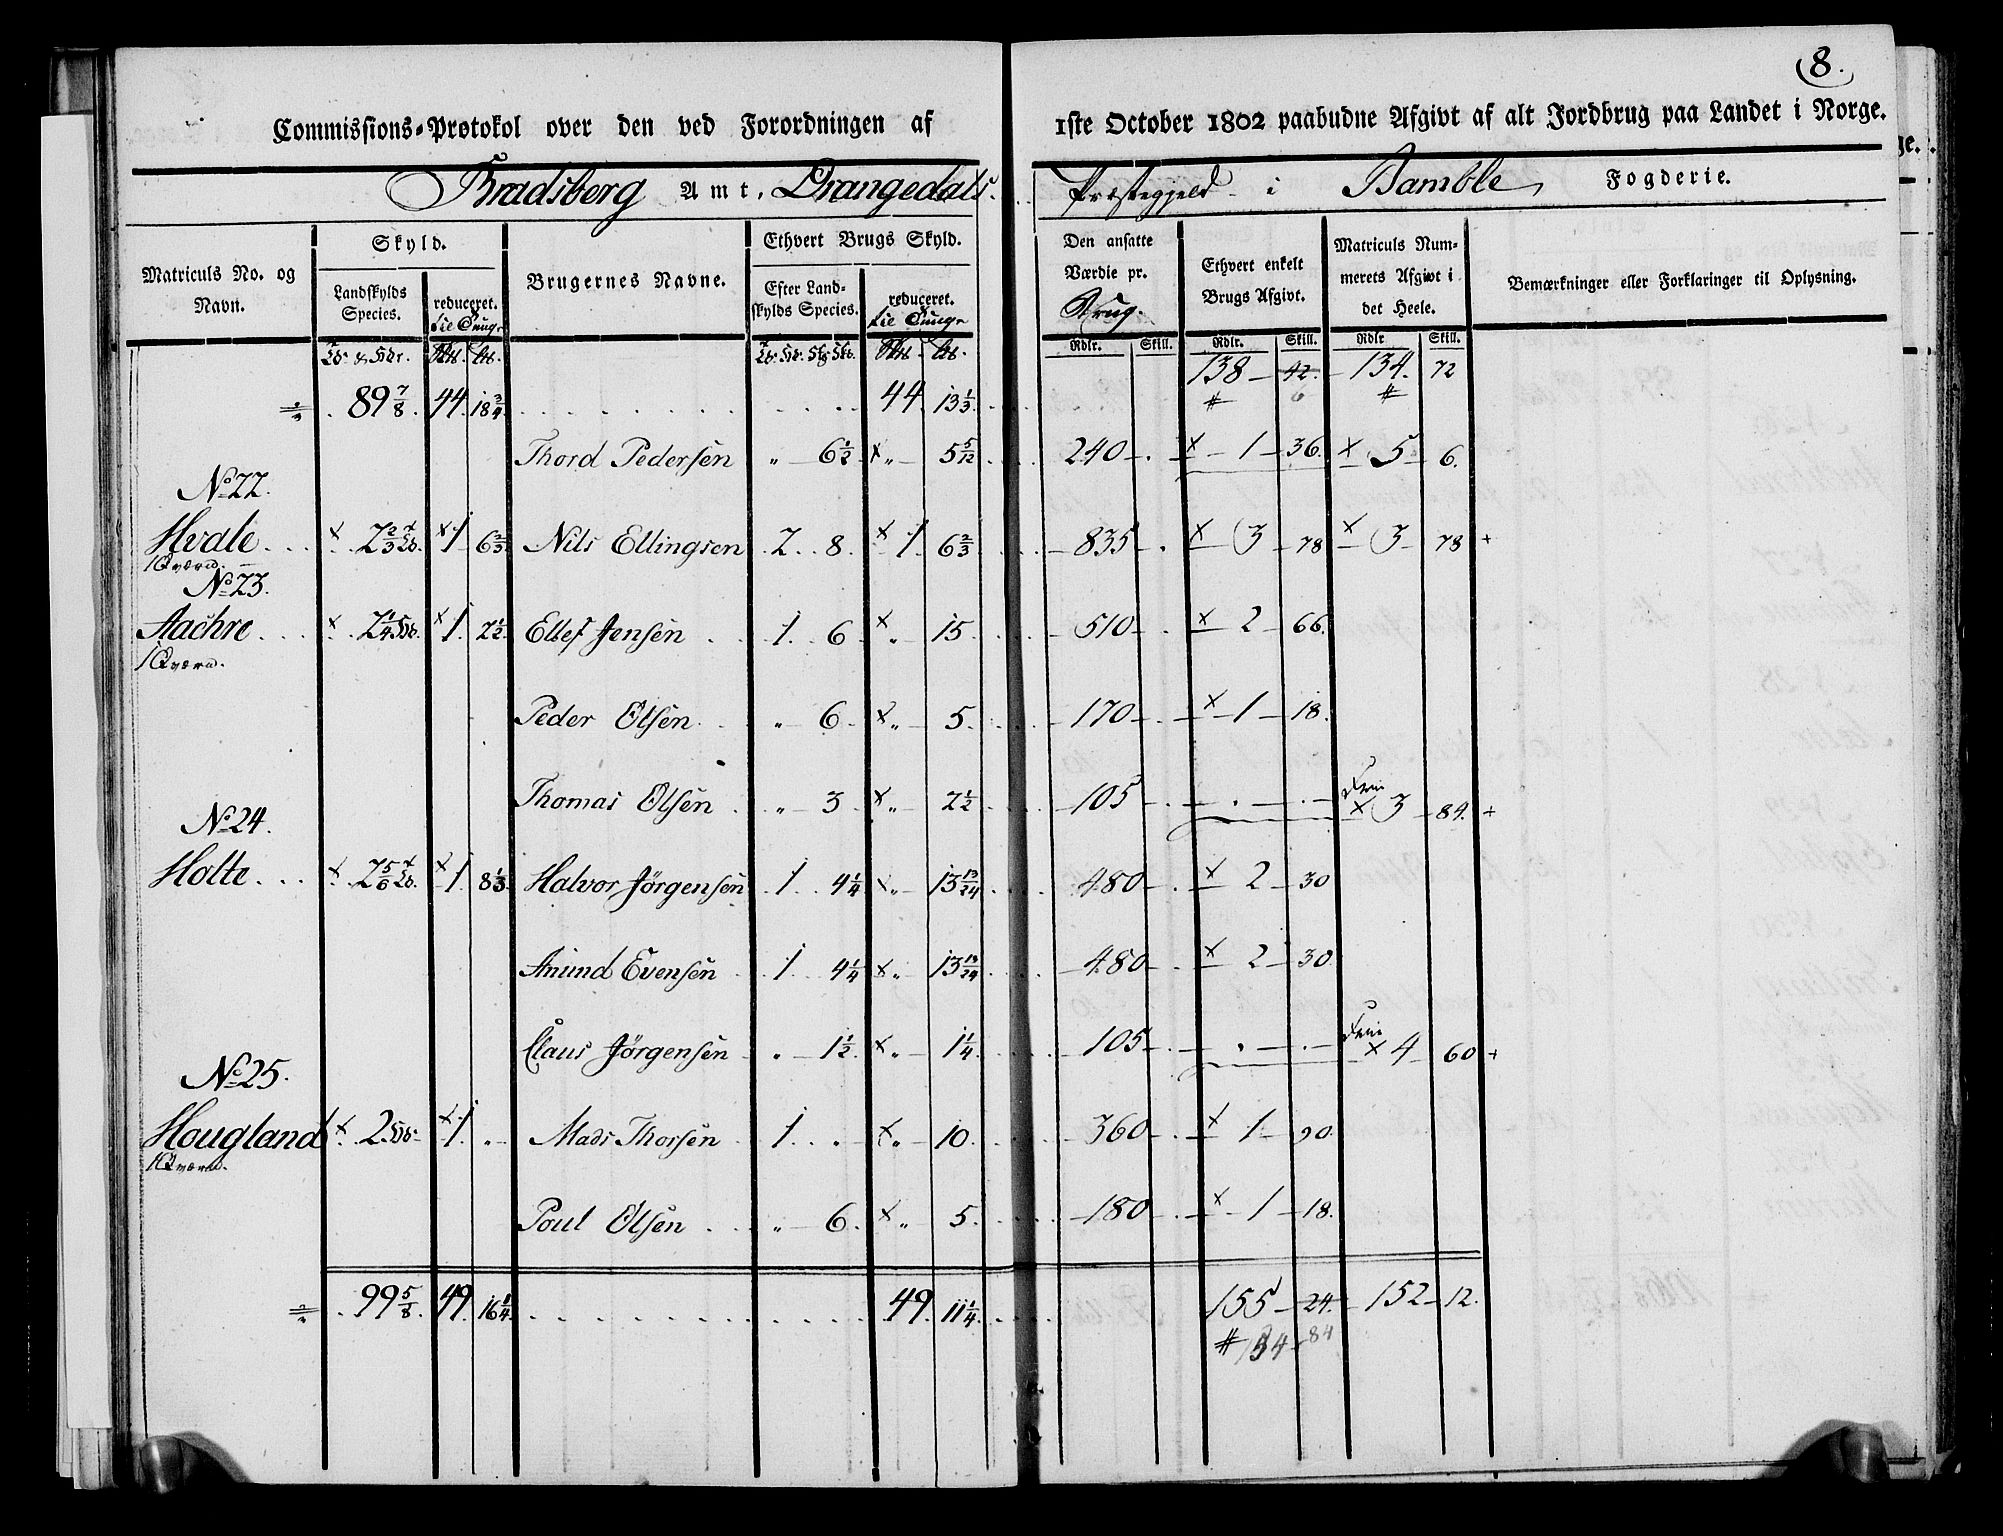 8.
Commissions-Protokol over den ved Forordningen af 1ste October 1802 paabudne Afgivt af alt Jordbrug paa Landet i Norge.
Bradsberg Amt, Drangedals Præstegjeld i Bamble Fogderie.
Matriculs No. og Navn.
Skyld.
Landskylds Species.
reduceret. til Tung-
Brugernes Navne.
Ethvert Brugs Skyld.
Efter Landskylds Species.
reduceret. til Tung-
Den ansatte Værdie pr. Brug.
Ethvert enkelt Brugs Afgivt.
Matriculs Nummerets Afgivt i det Heele.
Bemærkninger eller Forklaringer til Oplysning.
Rdlr. Skill. Rdlr. Skill. Rdlr. Skill.
89 7/8. 44. 18 3/4 . . . 44. 13 1/3 . . . 138 - 42. 134. 72
6
Thord Pedersen " 6 1/2 x " 5 5/12 240 - . x 1 - 36. x 5 - 6.
No 22.
Hvale . . . x 2 2/3 x 1 6 2/3 Nils Ellingsen 2 . 8. x 1 6 2/3 835 - . x 3 - 78 x 3 - 78 +
1 Qværn.
No 23.
Aachre . . . x 2 1/4 x 1. 2 1/2 Ellef Jensen . 1. 6 x " 15. 510 - . x 2 - 66.
1 Qværn.
Peder Olsen . " 6 x " 5. 170 - . x 1 - 18.
Thomas Olsen . " 3 x " 2 1/2 105 - . - . - . - Frie x 3 - 84. +
No 24.
Holte . . . x 2 5/6 x 1. 8 1/3 Halvor Jörgensen 1 . 4 1/4 x " 13 13/24 480 - . x 2 - 30
Amund Evensen . 1. 4 1/4 x " 13 13/24 480 - . x 2 - 30.
Claus Jörgensen . " 1 1/2 x " 1 1/4 105 - . - . - . - Frie x 4 - 60 +
No 25.
Hougland x 2 x 1 " Mads Thorsen 1. " x " 10. 360 - . x 1 - 90.
1 Qværn.
Poul Olsen . . " 6. x " 5. 180 - . x 1 - 18.
99 5/8. 49. 16 1/4 . . . 49. 11 1/4 . . . 155 - 24. 152 - 12.
# 154 - 84